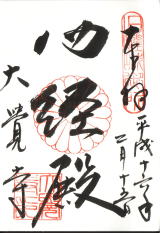 奉拝
平成十六年
二月十五日
心経殿
大覚寺